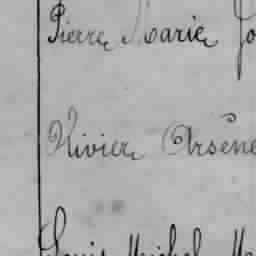 Pierre Marie Jo
Rivier Arsène
Louis Michel Ma